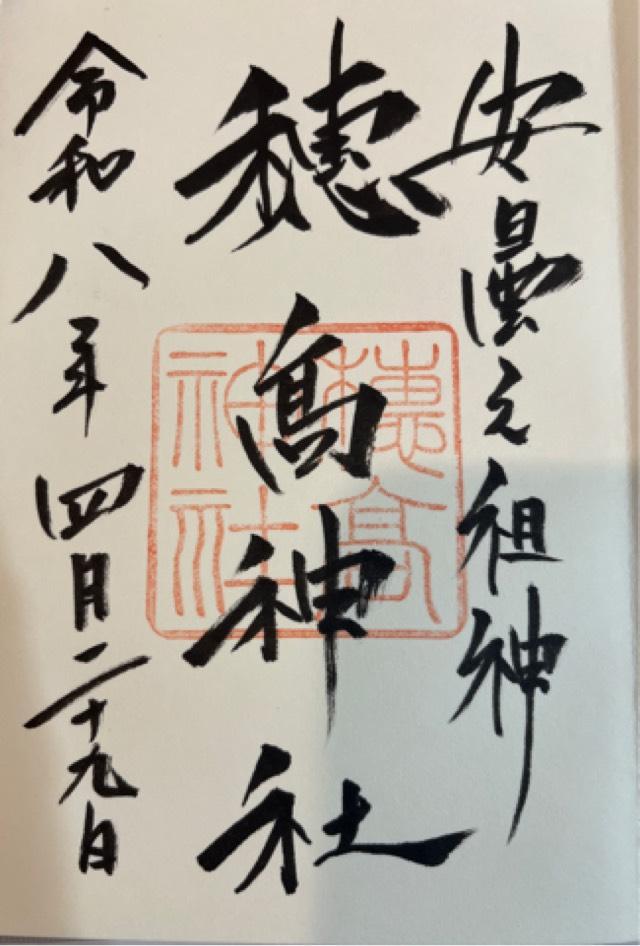 安曇之祖神
穂髙神社
穂高神社
令和八年四月二十九日